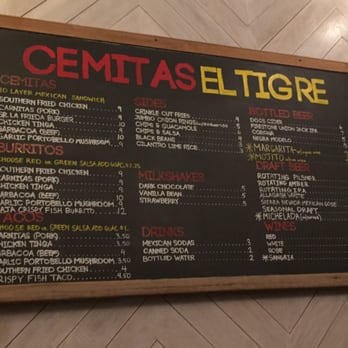 CEMITAS EL TIGRE
CEMITAS
LAYER MEXICAN SANDWICH
SOUTHERN FRIED CHICKEN 9
CARNITAS (PORK)
CHICKEN TINGA
BARBACOA (BEEF)
GARLIC PORTOBELLO MUSHROOM
BURRITOS
CHOOSE RED OR GREEN SALSA ADD GUAC
SOUTHERN FRIED CHICKEN
CARNITAS (PORK)
CHICKEN TINGA
BARBACOA (BEEF)
GARLIC PORTOBELLO MUSHROOM
BAJA CRISPY FISH BURRITO 12
TACOS
CHOOSE RED OR GREEN SALSA ADD GUAC
CARNITAS (PORK) 3.50
CHICKEN TINGA 3.50
BARBACOA (BEEF) 4
GARLIC PORTOBELLO MUSHROOM 3.50
SOUTHERN FRIED CHICKEN 4
CRISPY FISH TACO
SIDES
CRINGLE CUT FRIES
JUMBO ONION RINGS
CHIPS & GUACAMOLE
CHIPS & SALSA
BLACK BEANS
CILANTRO LIME RICE
MILKSHAKES
DARK CHOCOLATE 5
VANILLA BEAN 5
STRAWBERRY
DRINKS
MEXICAN SODAS 3
CANNED SODA 2
BOTTLED WATER 2
BOTTLED BEER
DOS EQUIS
CORONA
NEGRA MODELO
MARGARITA
MOJITO
DRAFT BEER
ROTATING PILSNER
ROTATING AMBER
ROTATING IPA
ALLAGASH WHITE
SIERRA NEVADA MEXICAN COKE
SEASONAL DRAFT
MICHELADA
WINES
RED
WHITE
ROSE
SANGRIA